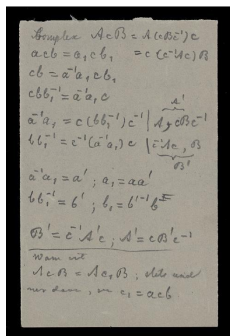 Komplex AcB = A(cBc⁻¹)c
acb = a₁cb₁ = c(c⁻¹Ac)B
cb = a⁻¹a₁cb₁
cbb₁⁻¹ = a⁻¹a₁c
A'
a⁻¹a₁ = c(bb₁⁻¹)c⁻¹ | A, cBc⁻¹
bb₁⁻¹ = c⁻¹(a⁻¹a₁)c | c⁻¹Ac, B
B'
a⁻¹a₁ = a' ; a₁ = aa'
bb₁⁻¹ = b' ; b₁ = b'⁻¹b
B' = c⁻¹A'c ; A' = cB'c⁻¹
Wann ist
AcB = Ac₁B ; stets und
nur dann, wenn c₁ = acb